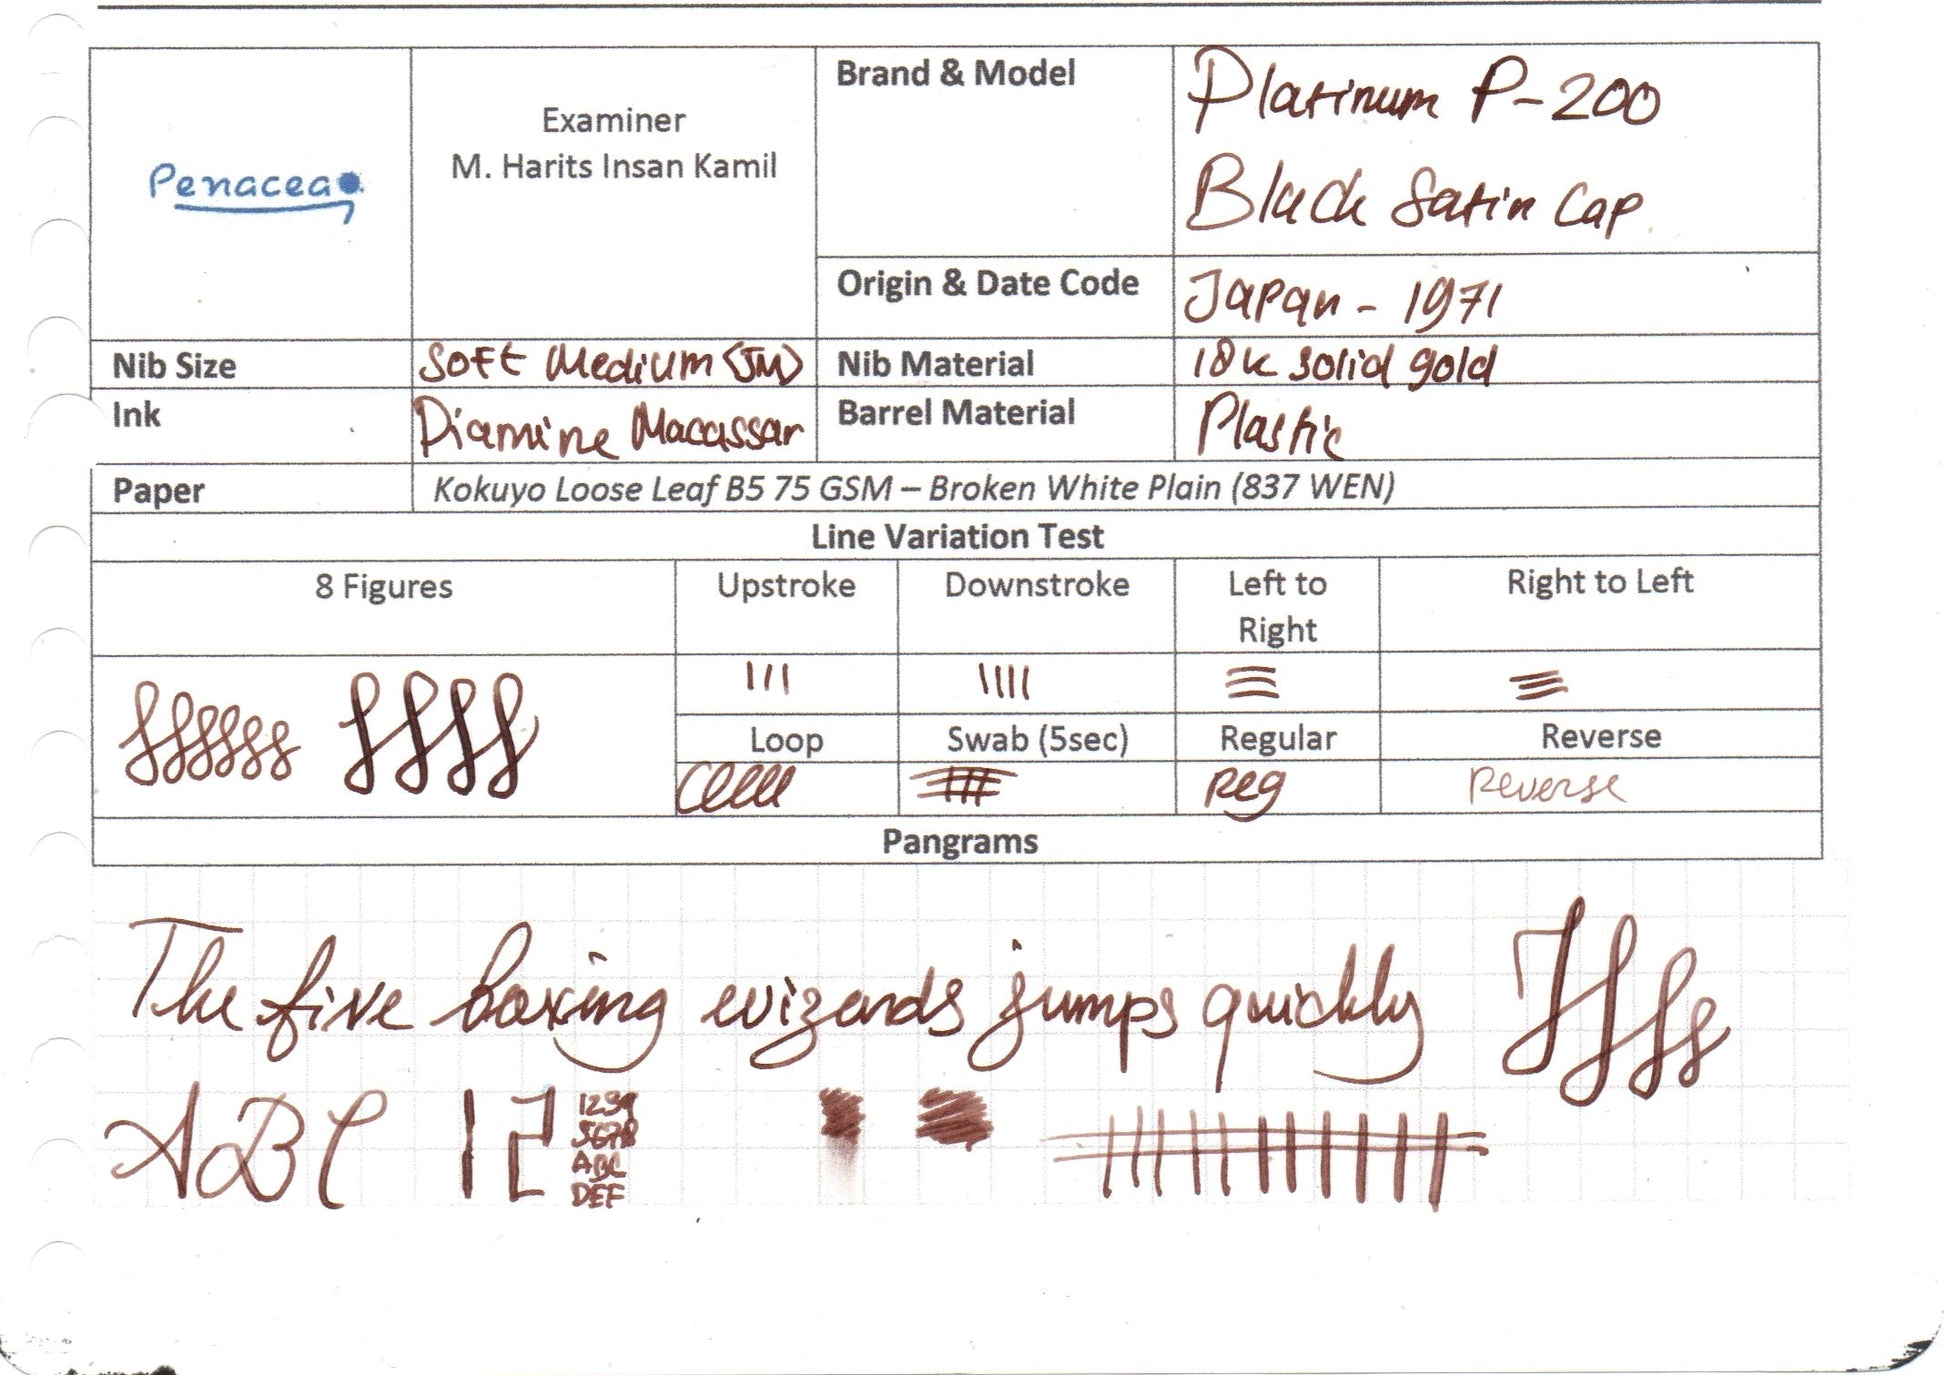 Penacea
Examiner
M. Harits Insan Kamil
Brand & Model
Platinum P-200
Black Satin Cap.
Origin & Date Code
Japan - 1971
Nib Size
Soft Medium (SM)
Nib Material
18k solid gold
Ink
Diamine Macassar
Barrel Material
Plastic
Paper
Kokuyo Loose Leaf B5 75 GSM – Broken White Plain (837 WEN)
Line Variation Test
8 Figures
Upstroke
Downstroke
Left to
Right
Right to Left
Loop
Swab (5sec)
Regular
Reverse
Reg
Reverse
Pangrams
The five boxing wizards jumps quickly
ABC 12
1234
5678
ABC
DEF